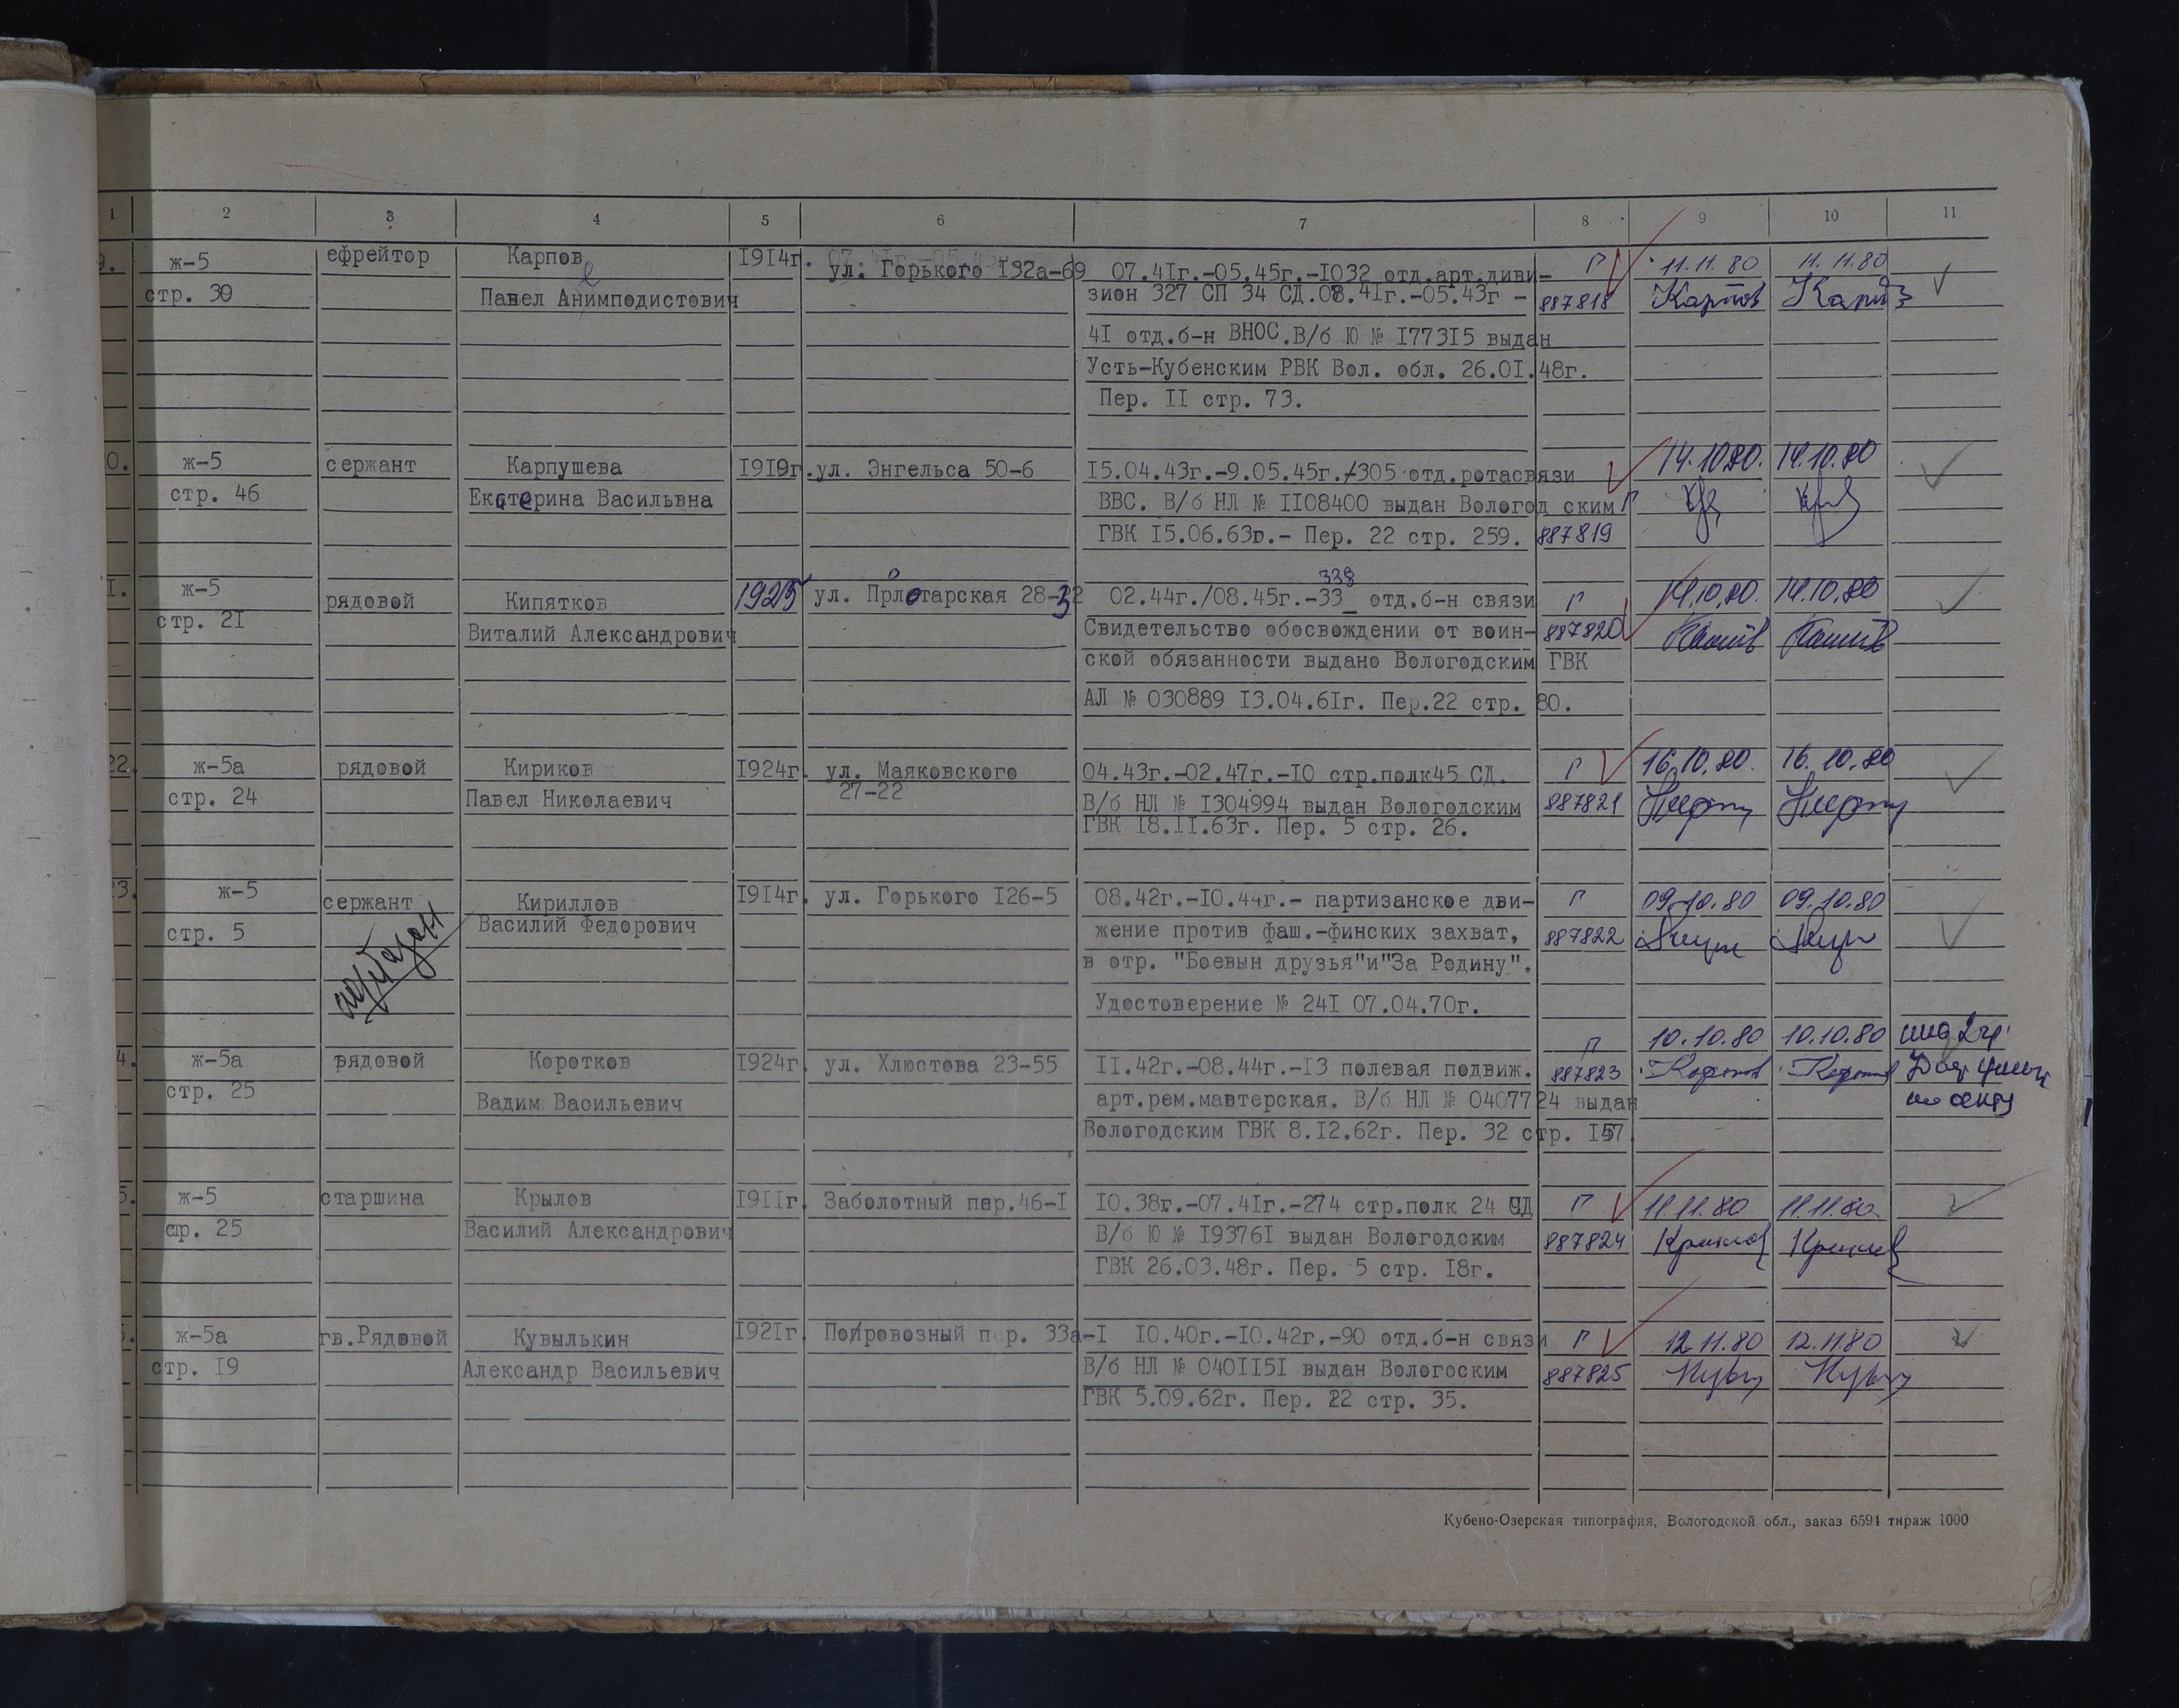 1 2 3 4 5 6 7 8 9 10 11
9. ж-5 ефрейтор Карпов 1914г. ул. Горького 132а-69 07.41г.-05.45г.-1032 отд.арт.диви- Г 11.11.80 11.11.80
стр. 30 Павел Анимподистович зион 327 СП 34 СД.08.41г.-05.43г - 887818 Карпов
41 отд.б-н ВНОС.В/б Ю № 177315 выдан
Усть-Кубенским РВК Вол. обл. 26.01.48г.
Пер. II стр. 73.
0. ж-5 сержант Карпушева 1919г. ул. Энгельса 50-6 15.04.43г.-9.05.45г.-305 отд.ротасвязи 14.10.80. 14.10.80
стр. 46 Екатерина Васильвна ВВС. В/б НЛ № 1108400 выдан Вологод ским Г
ГВК 15.06.63г.- Пер. 22 стр. 259. 887819
338
1. ж-5 рядовой Кипятков 1925 ул. Пролетарская 28-32 02.44г./08.45г.-33_ отд.б-н связи Г 14.10.80. 14.10.80
стр. 21 Виталий Александрович Свидетельство обосвождении от воин- 887820
ской обязанности выдано Вологодским ГВК
АЛ № 030889 13.04.61г. Пер.22 стр. 80.
22. ж-5а рядовой Кириков 1924г. ул. Маяковского 04.43г.-02.47г.-10 стр.полк45 СД. Г 16.10.80. 16.10.80
стр. 24 Павел Николаевич 27-22 В/б НЛ № 1304994 выдан Вологодским 887821
ГВК 18.11.63г. Пер. 5 стр. 26.
23. ж-5 сержант Кириллов 1914г. ул. Горького 126-5 08.42г.-10.44г.- партизанское дви- Г 09.10.80 09.10.80
стр. 5 Василий Федорович жение против фаш.-финских захват, 887822
в отр. "Боевын друзья"и"За Родину".
партизан
Удостоверение № 241 07.04.70г.
4. ж-5а рядовой Коротков 1924г. ул. Хлюстова 23-55 11.42г.-08.44г.-13 полевая подвиж. Г 10.10.80 10.10.80
стр. 25 Вадим Васильевич арт.рем.мавтерская. В/б НЛ № 0407724 выдан 887823
Вологодским ГВК 8.12.62г. Пер. 32 стр. 157.
5. ж-5 старшина Крылов 1911г. Заболотный пер.46-1 10.38г.-07.41г.-274 стр.полк 24 СД Г 11.11.80 11.11.80.
стр. 25 Василий Александрович В/б Ю № 193761 выдан Вологодским 887824 Крылов
ГВК 26.03.48г. Пер. 5 стр. 18г.
6. ж-5а гв.Рядовой Кувылькин 1921г. Поировозный пер. 33а-1 10.40г.-10.42г.-90 отд.б-н связи Г 12.11.80 12.11.80
стр. 19 Александр Васильевич В/б НЛ № 0401151 выдан Вологоским 887825
ГВК 5.09.62г. Пер. 22 стр. 35.
Кубено-Озерская типография, Вологодской обл., заказ 6594 тираж 1000